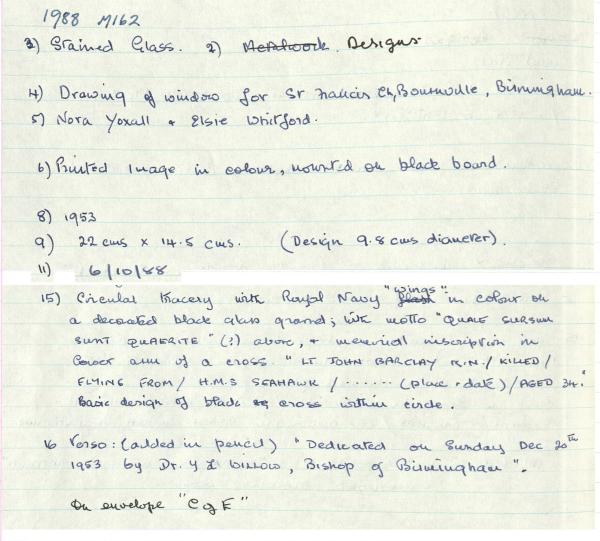 1988 M162
3) Stained Glass. 2) Metalwork. Designs
4) Drawing of window for St Francis Ch, Bournville, Birmingham.
5) Nora Yoxall & Elsie Whitford.
6) Printed image in colour, mounted on black board.
8) 1953
9) 22 cms x 14.5 cms. (Design 9.8 cms diameter).
11) 6/10/88
15) Circular tracery with Royal Navy "wings" in colour on
a decorated black glass ground; with motto "QUALE SURSUM
SUNT QUAERITE" (?) above, & memorial inscription in
lower arm of a cross. "LT JOHN BARCLAY R.N./ KILLED/
FLYING FROM/ H.M.S SEAHAWK / ...... (place & date) / AGED 34."
Basic design of black cross within circle.
16 Verso: (added in pencil) "Dedicated on Sunday Dec 20th
1953 by Dr. Bishop of Birmingham".
On envelope "C g E"